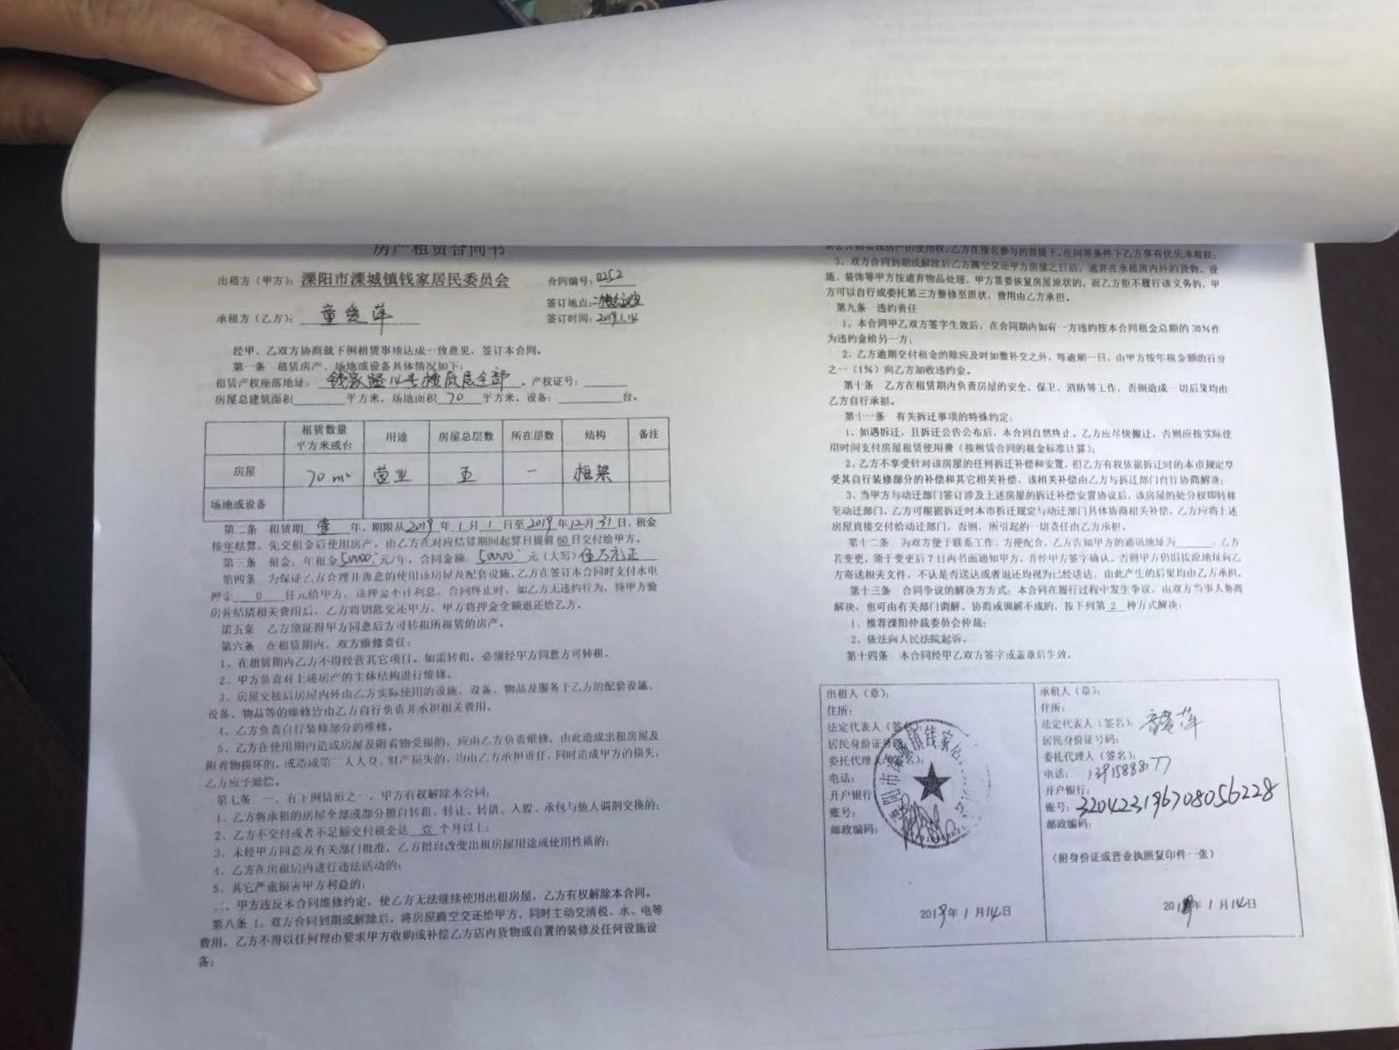 房产租赁合同书
出租方（甲方）：溧阳市溧城镇钱家居民委员会
合同编号：0252
签订地点：
承租方（乙方）：童
签订时间：2019.1.14
经甲、乙双方协商就下例租赁事项达成一致意见，签订本合同。
第一条 租赁房产、场地或设备具体情况如下：
租赁产权座落地址：钱家 14号楼底层全部 。产权证号：
房屋总建筑面积 平方米，场地面积 70 平方米，设备： 台。
租赁数量 平方米或台 用途 房屋总层数 所在层数 结构 备注
房屋 70m² 营业 五 一 框架
场地或设备
第二条 租赁期 壹 年，期限从2019年1月1日至2019年12月31日，租金
按年结算，先交租金后使用房产，由乙方在对应结算期间起算日提前60日交付给甲方。
第三条 租金：年租金50000元/年，合同金额：50000元（大写）伍万元正
第四条 为保证乙方合理并善意的使用该房屋及配套设施，乙方在签订本合同时支付水电
押金 0 仟元给甲方，该押金不计利息，合同终止时，如乙方无违约行为，待甲方验
房并结清相关费用后，乙方将钥匙交还甲方，甲方将押金全额退还给乙方。
第五条 乙方须征得甲方同意后方可转租所租赁的房产。
第六条 在租赁期内，双方维修责任：
1、在租赁期内乙方不得经营其它项目。如需转租，必须经甲方同意方可转租。
2、甲方负责对上述房产的主体结构进行维修。
3、房屋交接后房屋内外由乙方实际使用的设施、设备、物品及服务于乙方的配套设施、
设备、物品等的维修皆由乙方自行负责并承担相关费用。
4、乙方负责自行装修部分的维修。
5、乙方在使用期内造成房屋及附着物受损的，应由乙方负责维修，由此造成出租房屋及
附着物损坏的，或造成第三人人身、财产损失的，均由乙方承担责任，同时造成甲方的损失，
乙方应予赔偿。
第七条 一、有下例情形之一，甲方有权解除本合同：
1、乙方将承租的房屋全部或部分擅自转租、转让、转借、入股、承包与他人调剂交换的；
2、乙方不交付或者不足额交付租金达 壹 个月以上；
3、未经甲方同意及有关部门批准，乙方擅自改变出租房屋用途或使用性质的；
4、乙方在出租房内进行违法活动的；
5、其它严重损害甲方利益的；
二、甲方违反本合同维修约定，使乙方无法继续使用出租房屋，乙方有权解除本合同。
第八条 1、双方合同到期或解除后，将房屋腾空交还给甲方，同时主动交清税、水、电等
费用，乙方不得以任何理由要求甲方收购或补偿乙方店内货物或自置的装修及任何设施设
备；
房产的使用权，乙方在报名参与的前提下，在同等条件下乙方享有优先承租权；
3、双方合同到期或解除后乙方腾空交还甲方房屋之日后，遗弃在承租房内外的货物、设
施、装饰等甲方按遗弃物品处理，甲方需要恢复房屋原状的，而乙方拒不履行该义务的，甲
方可以自行或委托第三方整修至原状，费用由乙方承担。
第九条 违约责任
1、本合同甲乙双方签字生效后，在合同期内如有一方违约按本合同租金总额的30%作
为违约金给另一方；
2、乙方逾期交付租金的除应及时如数补交之外，每逾期一日，由甲方按年租金额的百分
之一（1%）向乙方加收违约金。
第十条 乙方在租赁期内负责房屋的安全、保卫、消防等工作，否则造成一切后果均由
乙方自行承担。
第十一条 有关拆迁事项的特殊约定：
1、如遇拆迁，且拆迁公告公布后，本合同自然终止。乙方应尽快搬迁，否则应按实际使
用时间支付房屋租赁使用费（按租赁合同的租金标准计算）；
2、乙方不享受针对该房屋的任何拆迁补偿和安置，但乙方有权依据拆迁时的本市规定享
受其自行装修部分的补偿和其它相关补偿，该相关补偿由乙方与拆迁部门自行协商解决；
3、当甲方与动迁部门签订涉及上述房屋的拆迁补偿安置协议后，该房屋的处分权即转移
至动迁部门，乙方可根据拆迁时本市拆迁规定与动迁部门具体协商相关补偿，乙方应将上述
房屋直接交付给动迁部门，否则，所引起的一切责任由乙方承担。
第十二条 为双方便于联系工作，方便配合，乙方告知甲方的通讯地址为 ，乙方
若变更，须于变更后7日内书面通知甲方，并经甲方签字确认。否则甲方仍旧按原地址向乙
方寄送相关文件，不认是否送达或者退还均视为已经送达，由此产生的后果均由乙方承担。
第十三条 合同争议的解决方式：本合同在履行过程中发生争议，由双方当事人协商
解决，也可由有关部门调解，协商或调解不成的，按下列第 2 种方式解决：
1、推荐溧阳仲裁委员会仲裁；
2、依法向人民法院起诉。
第十四条 本合同经甲乙双方签字或盖章后生效。
出租人（章）：
住所：
法定代表人（签名）
居民身份证号
委托代理人
电话：
开户银行
账号：
邮政编码：
2019年1月14日
承租人（章）：
住所：
法定代表人（签名）：童
居民身份证号码：
委托代理人（签名）：
电话：
开户银行：
账号：320423196708056228
邮政编码：
（附身份证或营业执照复印件一张）
2019年1月14日